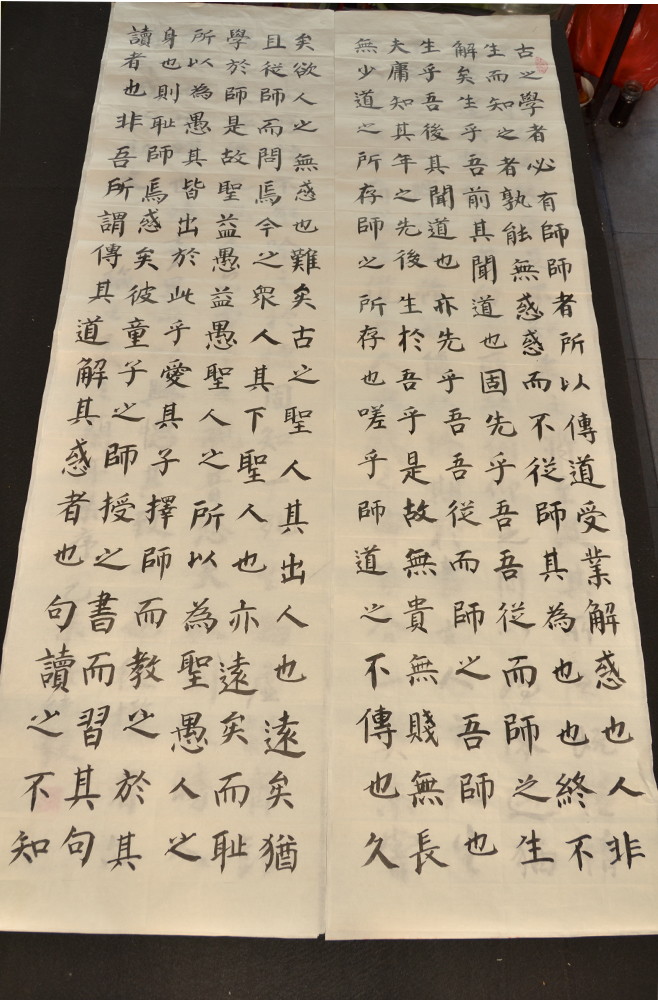 古之學者必有師師者所以傳道受業解惑也人非
生而知之者孰能無惑惑而不從師其為也也終不
解矣生乎吾前其聞道也固先乎吾吾從而師之生
生乎吾後其聞道也亦先乎吾吾從而師之吾師也
夫庸知其年之先後生於吾乎是故無貴無賤無長
無少道之所存師之所存也嗟乎師道之不傳也久
矣欲人之無惑也難矣古之聖人其出人也遠矣猶
且從師而問焉今之眾人其下聖人也亦遠矣而耻
學於師是故聖益愚益愚聖人之所以為聖愚人之
所以為愚其皆出於此乎愛其子擇師而教之於其
身也則耻師焉惑矣彼童子之師授之書而習其句
讀者也非吾所謂傳其道解其惑者也句讀之不知